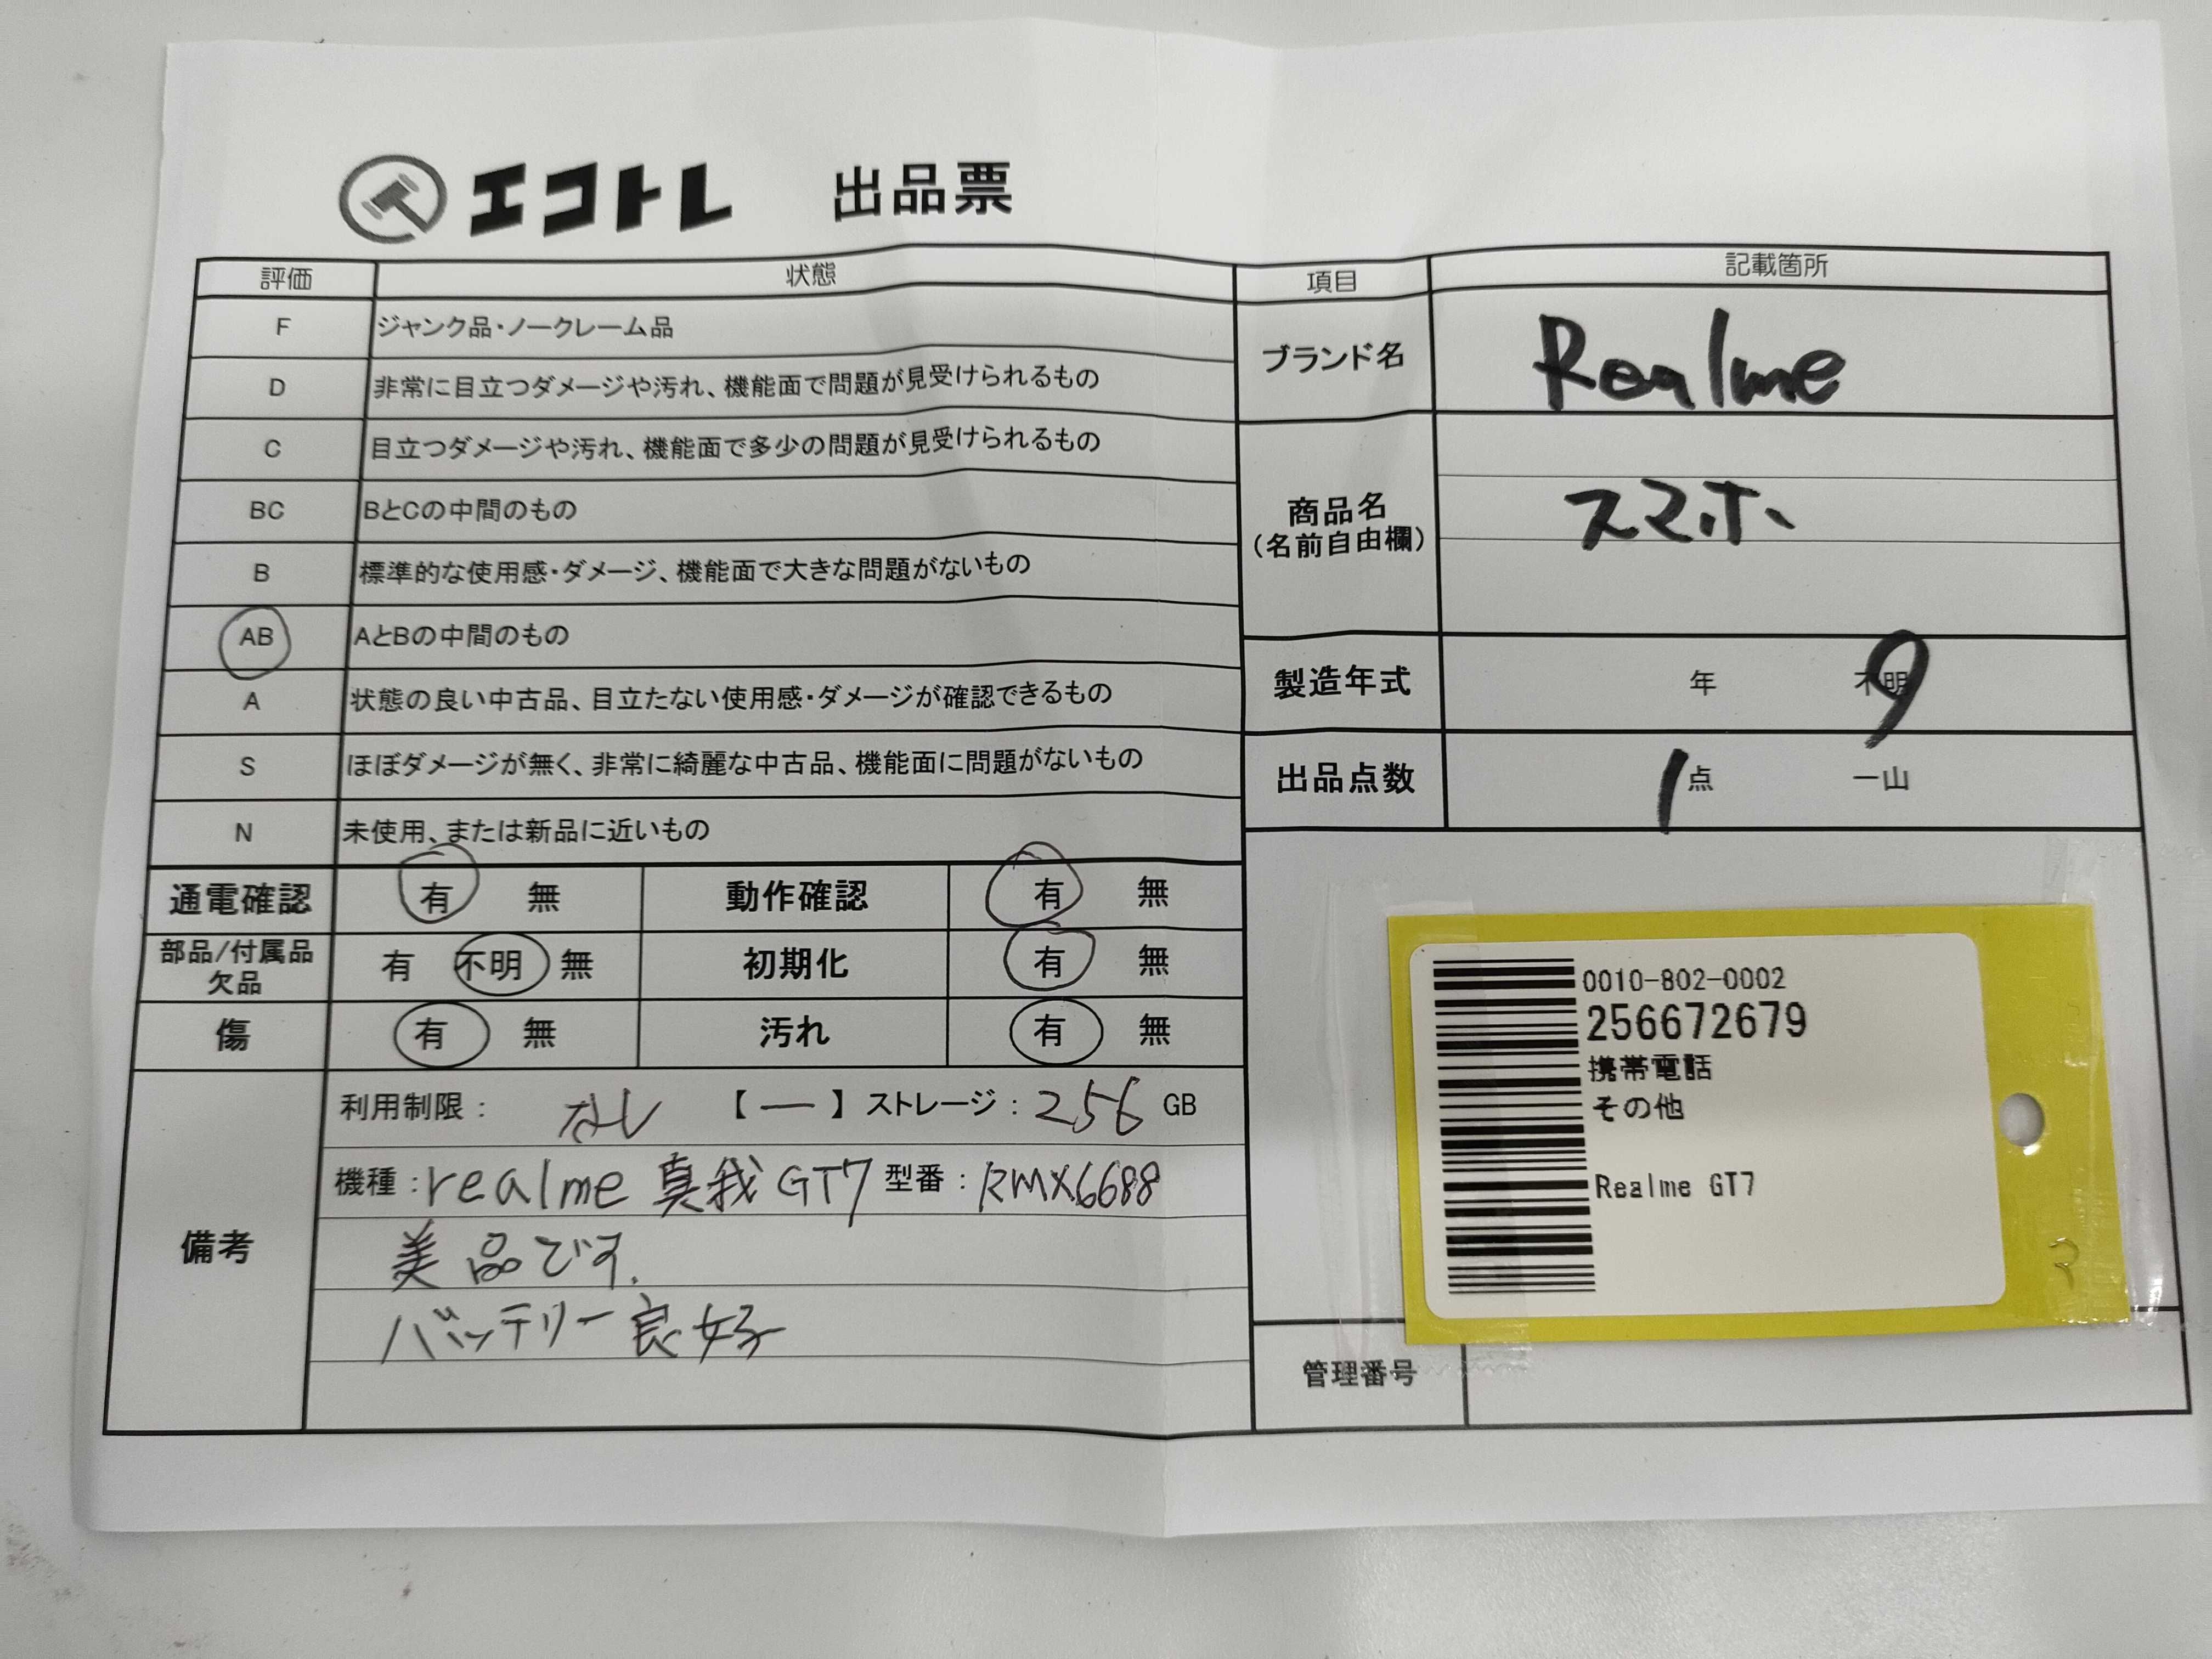 エコトレ 出品票
評価 状態
F ジャンク品・ノークレーム品
D 非常に目立つダメージや汚れ、機能面で問題が見受けられるもの
C 目立つダメージや汚れ、機能面で多少の問題が見受けられるもの
BC BとCの中間のもの
B 標準的な使用感・ダメージ、機能面で大きな問題がないもの
AB AとBの中間のもの
A 状態の良い中古品、目立たない使用感・ダメージが確認できるもの
S ほぼダメージが無く、非常に綺麗な中古品、機能面に問題がないもの
N 未使用、または新品に近いもの
通電確認 有 無 動作確認 有 無
部品/付属品
欠品
有 不明 無 初期化 有 無
傷 有 無 汚れ 有 無
備考
利用制限: なし 【 ー 】 ストレージ: 256 GB
機種: realme 真我 GT7 型番: RMX6688
美品です.
バッテリー良好
項目 記載箇所
ブランド名 Realme
商品名
(名前自由欄)
スマホ
製造年式 年 不明
出品点数 1点 一山
0010-802-0002
256672679
携帯電話
その他
Realme GT7
管理番号